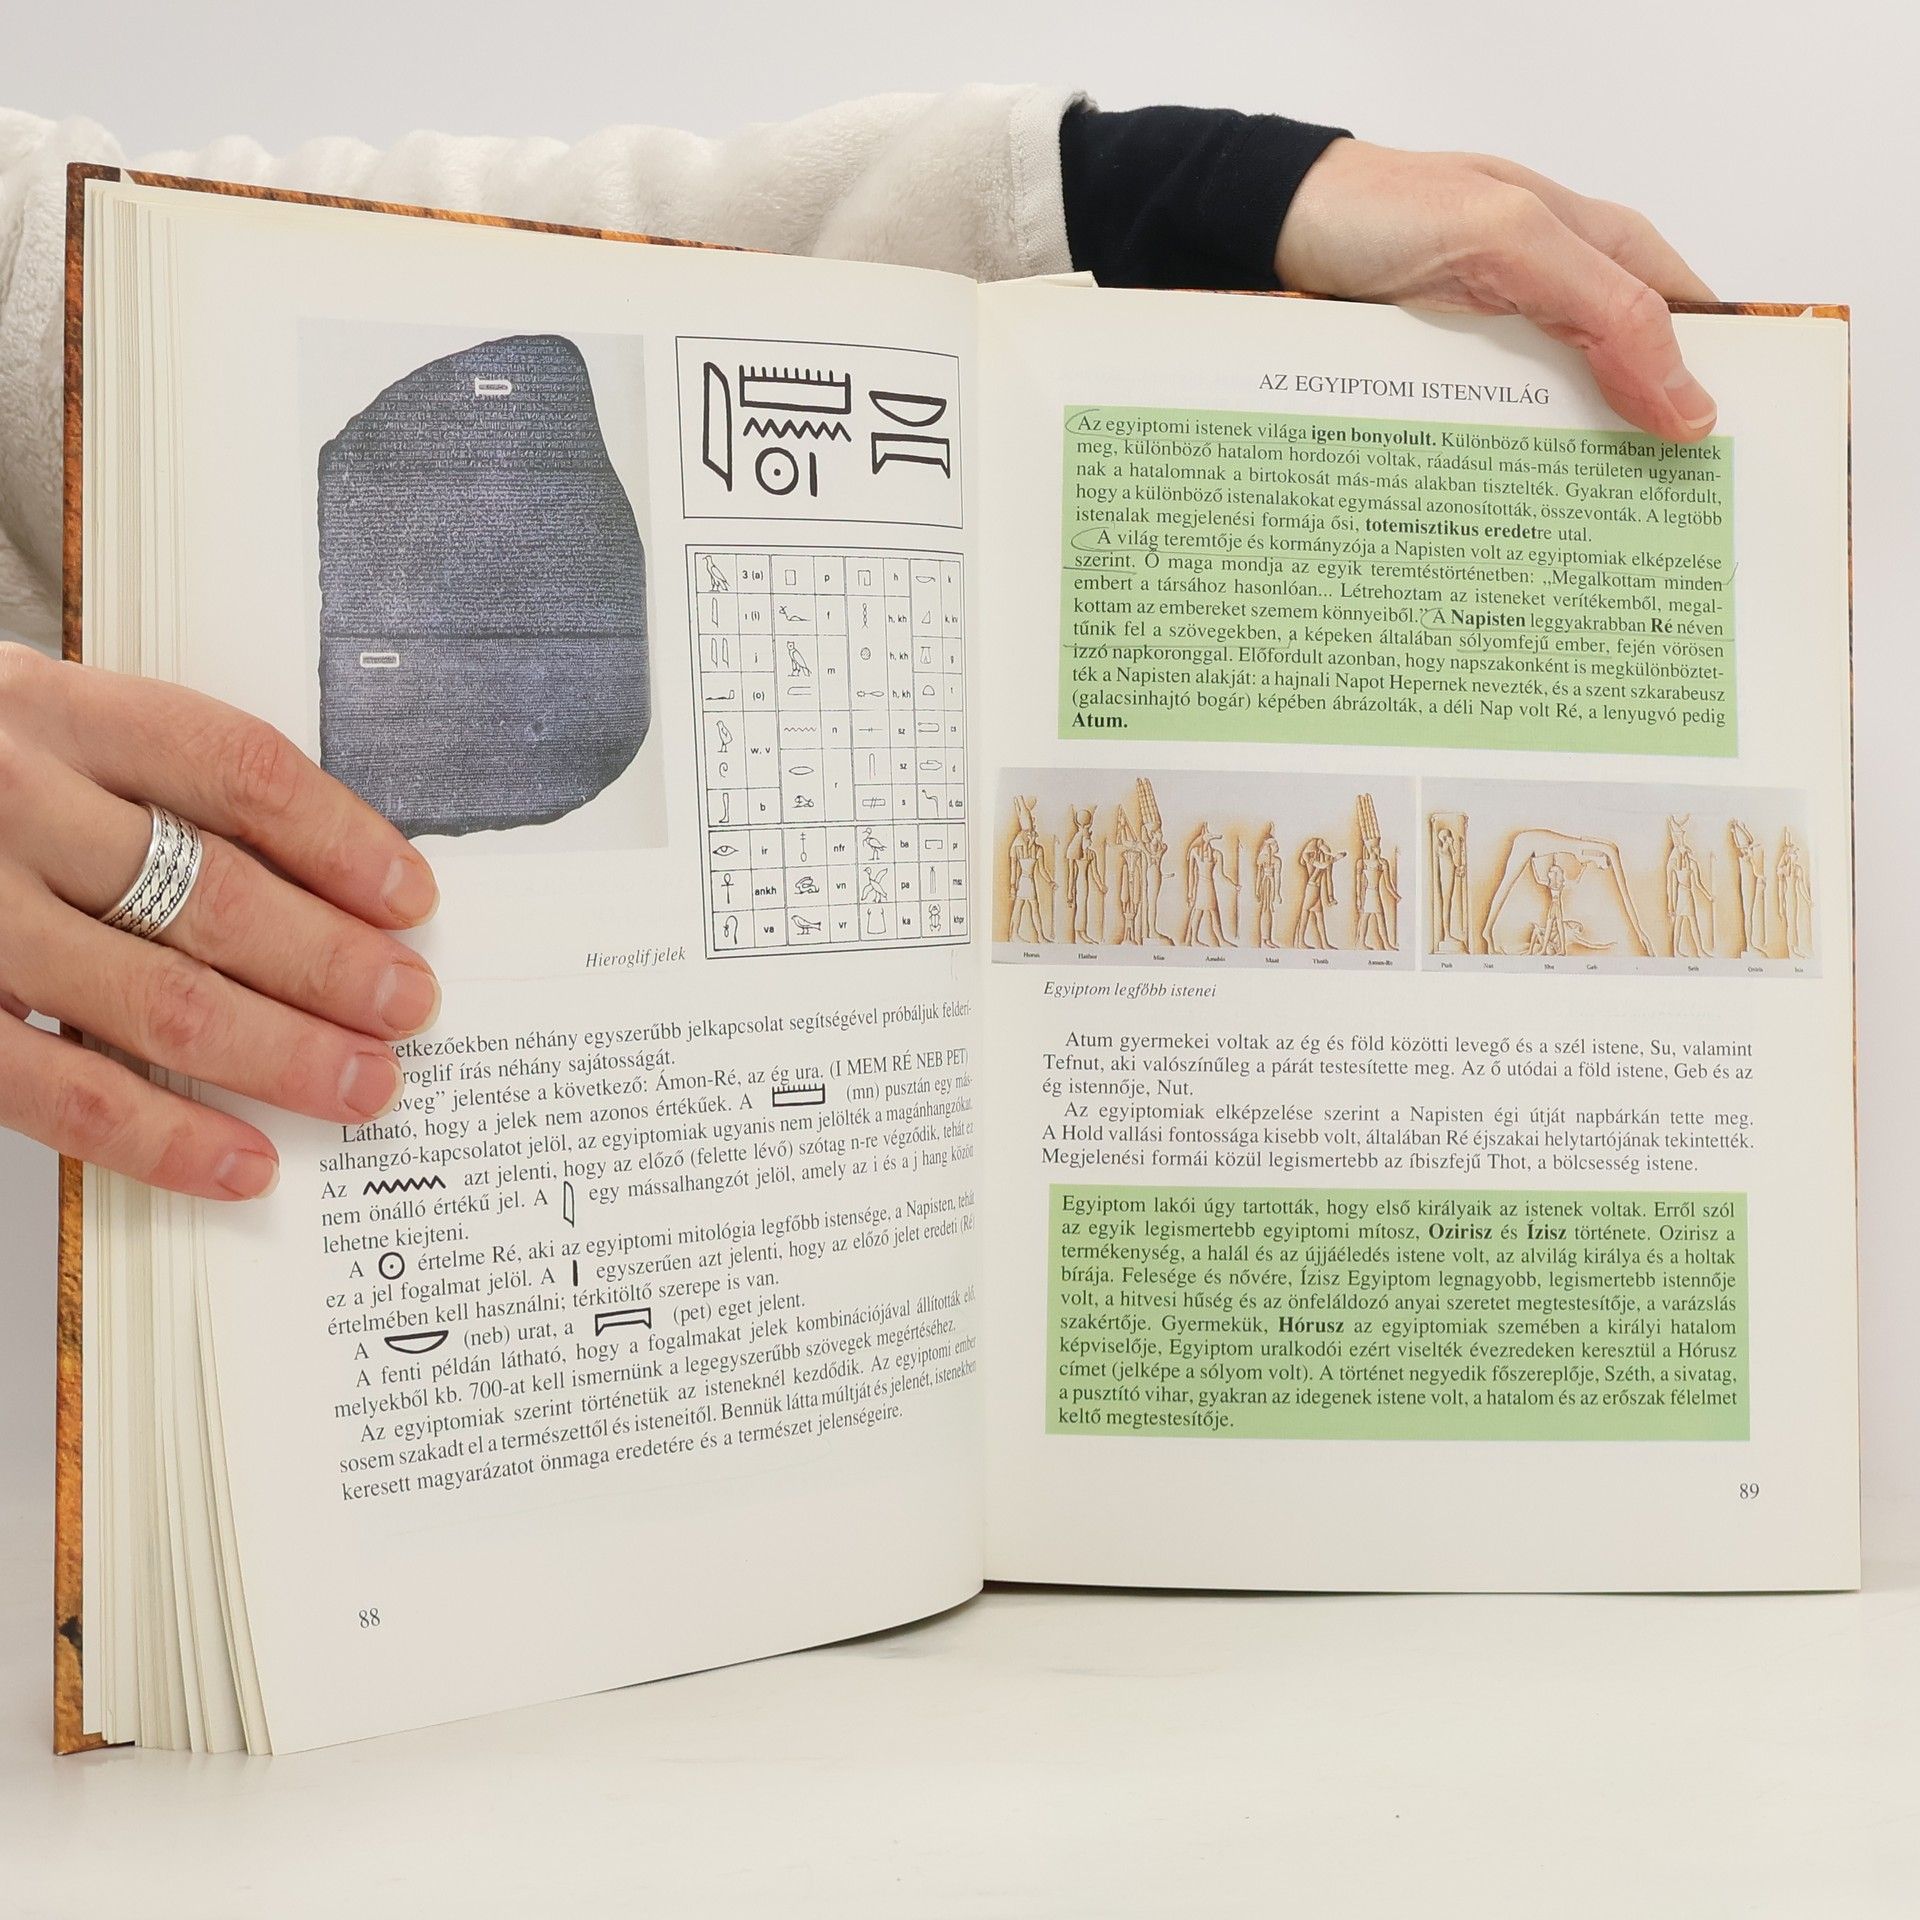 3 (a)
p
h
k
ı (i)
f
h, kh
j
m
h, kh
g
(o)
h, kh
t
w, v
n
sz
cs
r
sz
d
b
s
ir
nfr
ba
pr
ankh
vn
pa
va
vr
ka
khpr
Hieroglif jelek
etkezőekben néhány egyszerűbb jelkapcsolat segítségével próbáljuk felderí-
roglif írás néhány sajátosságát.
öveg” jelentése a következő: Ámon-Ré, az ég ura. (I MEM RÉ NEB PET)
Látható, hogy a jelek nem azonos értékűek. A (mn) pusztán egy más-
salhangzó-kapcsolatot jelöl, az egyiptomiak ugyanis nem jelölték a magánhangzókat.
Az azt jelenti, hogy az előző (felette lévő) szótag n-re végződik, tehát ez
nem önálló értékű jel. A egy mássalhangzót jelöl, amely az i és a j hang között
lehetne kiejteni.
A értelme Ré, aki az egyiptomi mitológia legfőbb istensége, a Napisten, tehát
ez a jel fogalmat jelöl. A egyszerűen azt jelenti, hogy az előző jelet eredeti (Ré)
értelmében kell használni; térkitöltő szerepe is van.
A (neb) urat, a (pet) eget jelent.
A fenti példán látható, hogy a fogalmakat jelek kombinációjával állították elő,
melyekből kb. 700-at kell ismernünk a legegyszerűbb szövegek megértéséhez.
Az egyiptomiak szerint történetük az isteneknél kezdődik. Az egyiptomi ember
sosem szakadt el a természettől és isteneitől. Bennük látta múltját és jelenét, istenekben
keresett magyarázatot önmaga eredetére és a természet jelenségeire.
88
AZ EGYIPTOMI ISTENVILÁG
Az egyiptomi istenek világa igen bonyolult. Különböző külső formában jelentek
meg, különböző hatalom hordozói voltak, ráadásul más-más területen ugyanan-
nak a hatalomnak a birtokosát más-más alakban tisztelték. Gyakran előfordult,
hogy a különböző istenalakokat egymással azonosították, összevonták. A legtöbb
istenalak megjelenési formája ősi, totemisztikus eredetre utal.
A világ teremtője és kormányzója a Napisten volt az egyiptomiak elképzelése
szerint. Ő maga mondja az egyik teremtéstörténetben: „Megalkottam minden
embert a társához hasonlóan... Létrehoztam az isteneket verítékemből, megal-
kottam az embereket szemem könnyeiből.” A Napisten leggyakrabban Ré néven
tűnik fel a szövegekben, a képeken általában sólyomfejű ember, fején vörösen
izzó napkoronggal. Előfordult azonban, hogy napszakonként is megkülönböztet-
ték a Napisten alakját: a hajnali Napot Hepernek nevezték, és a szent szkarabeusz
(galacsinhajtó bogár) képében ábrázolták, a déli Nap volt Ré, a lenyugvó pedig
Atum.
Horus Hathor Min Anubis Maat Thoth Amon-Re
Ptah Nut Shu Geb Seth Osiris Isis
Egyiptom legfőbb istenei
Atum gyermekei voltak az ég és föld közötti levegő és a szél istene, Su, valamint
Tefnut, aki valószínűleg a párát testesítette meg. Az ő utódai a föld istene, Geb és az
ég istennője, Nut.
Az egyiptomiak elképzelése szerint a Napisten égi útját napbárkán tette meg.
A Hold vallási fontossága kisebb volt, általában Ré éjszakai helytartójának tekintették.
Megjelenési formái közül legismertebb az íbiszfejű Thot, a bölcsesség istene.
Egyiptom lakói úgy tartották, hogy első királyaik az istenek voltak. Erről szól
az egyik legismertebb egyiptomi mítosz, Ozirisz és Ízisz története. Ozirisz a
termékenység, a halál és az újjáéledés istene volt, az alvilág királya és a holtak
bírája. Felesége és nővére, Ízisz Egyiptom legnagyobb, legismertebb istennője
volt, a hitvesi hűség és az önfeláldozó anyai szeretet megtestesítője, a varázslás
szakértője. Gyermekük, Hórusz az egyiptomiak szemében a királyi hatalom
képviselője, Egyiptom uralkodói ezért viselték évezredeken keresztül a Hórusz
címet (jelképe a sólyom volt). A történet negyedik főszereplője, Széth, a sivatag,
a pusztító vihar, gyakran az idegenek istene volt, a hatalom és az erőszak félelmet
keltő megtestesítője.
89